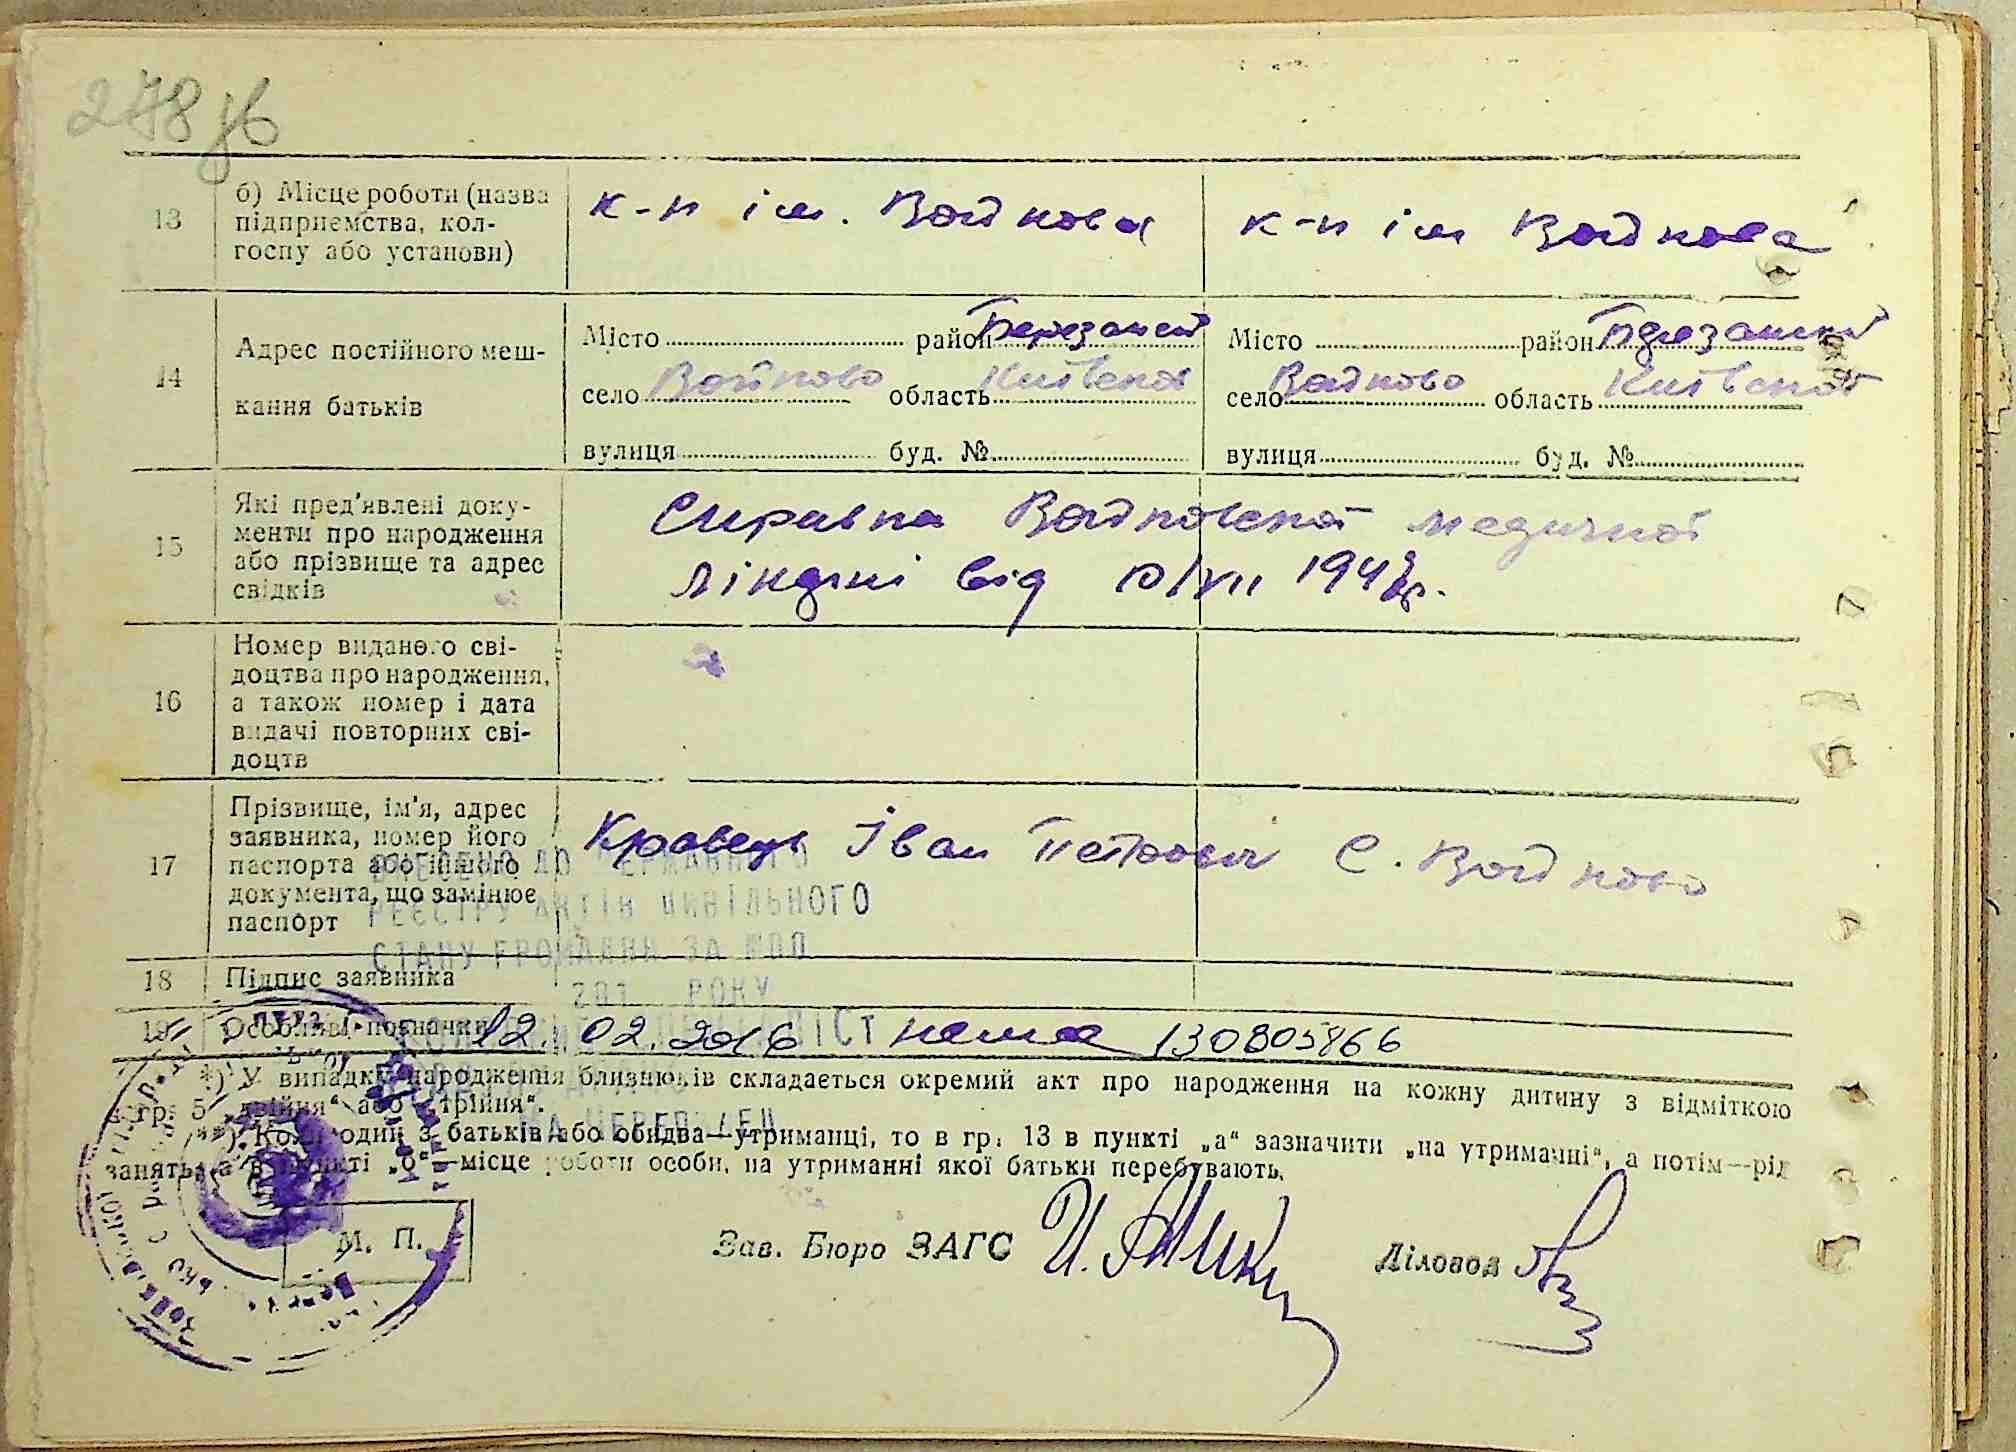 278 зв
13
б) Місце роботи (назва
підприємства, кол-
госпу або установи)
к-п ім. Войкова
к-п ім Войкова
14
Адрес постійного меш-
кання батьків
Місто район Березансй
село Войково область Київская
вулиця буд. №
Місто район Березанский
село Войково область Київская
вулиця буд. №
15
Які пред'явлені доку-
менти про народження
або прізвище та адрес
свідків
Справка Войковской медичной
від 10/VII 194 р.
16
Номер виданого сві-
доцтва про народження,
а також номер і дата
видачі повторних сві-
доцтв
17
Прізвище, ім'я, адрес
заявника, номер його
паспорта або іншого
документа, що замінює
паспорт
Кравець Іван Петрович С. Войково
ВНЕСЕНО ДО ДЕРЖАВНОГО
РЕЄСТРУ АКТІВ ЦИВІЛЬНОГО
СТАНУ ГРОМАДЯН ЗА
201 РОКУ
18
Підпис заявника
19
Особливі позначки
12. 02. 2016 нема 130805866
*) У випадку народження близнюків складається окремий акт про народження на кожну дитину з відміткою
в гр. 5 „двійня“ або „трійня“.
**) Коли один з батьків або обидва—утриманці, то в гр. 13 в пункті „а“ зазначити „на утриманні“, а потім—рід
занять, а в пункті „б“—місце роботи особи, на утриманні якої батьки перебувають.
М. П.
Зав. Бюро ЗАГС
Діловод